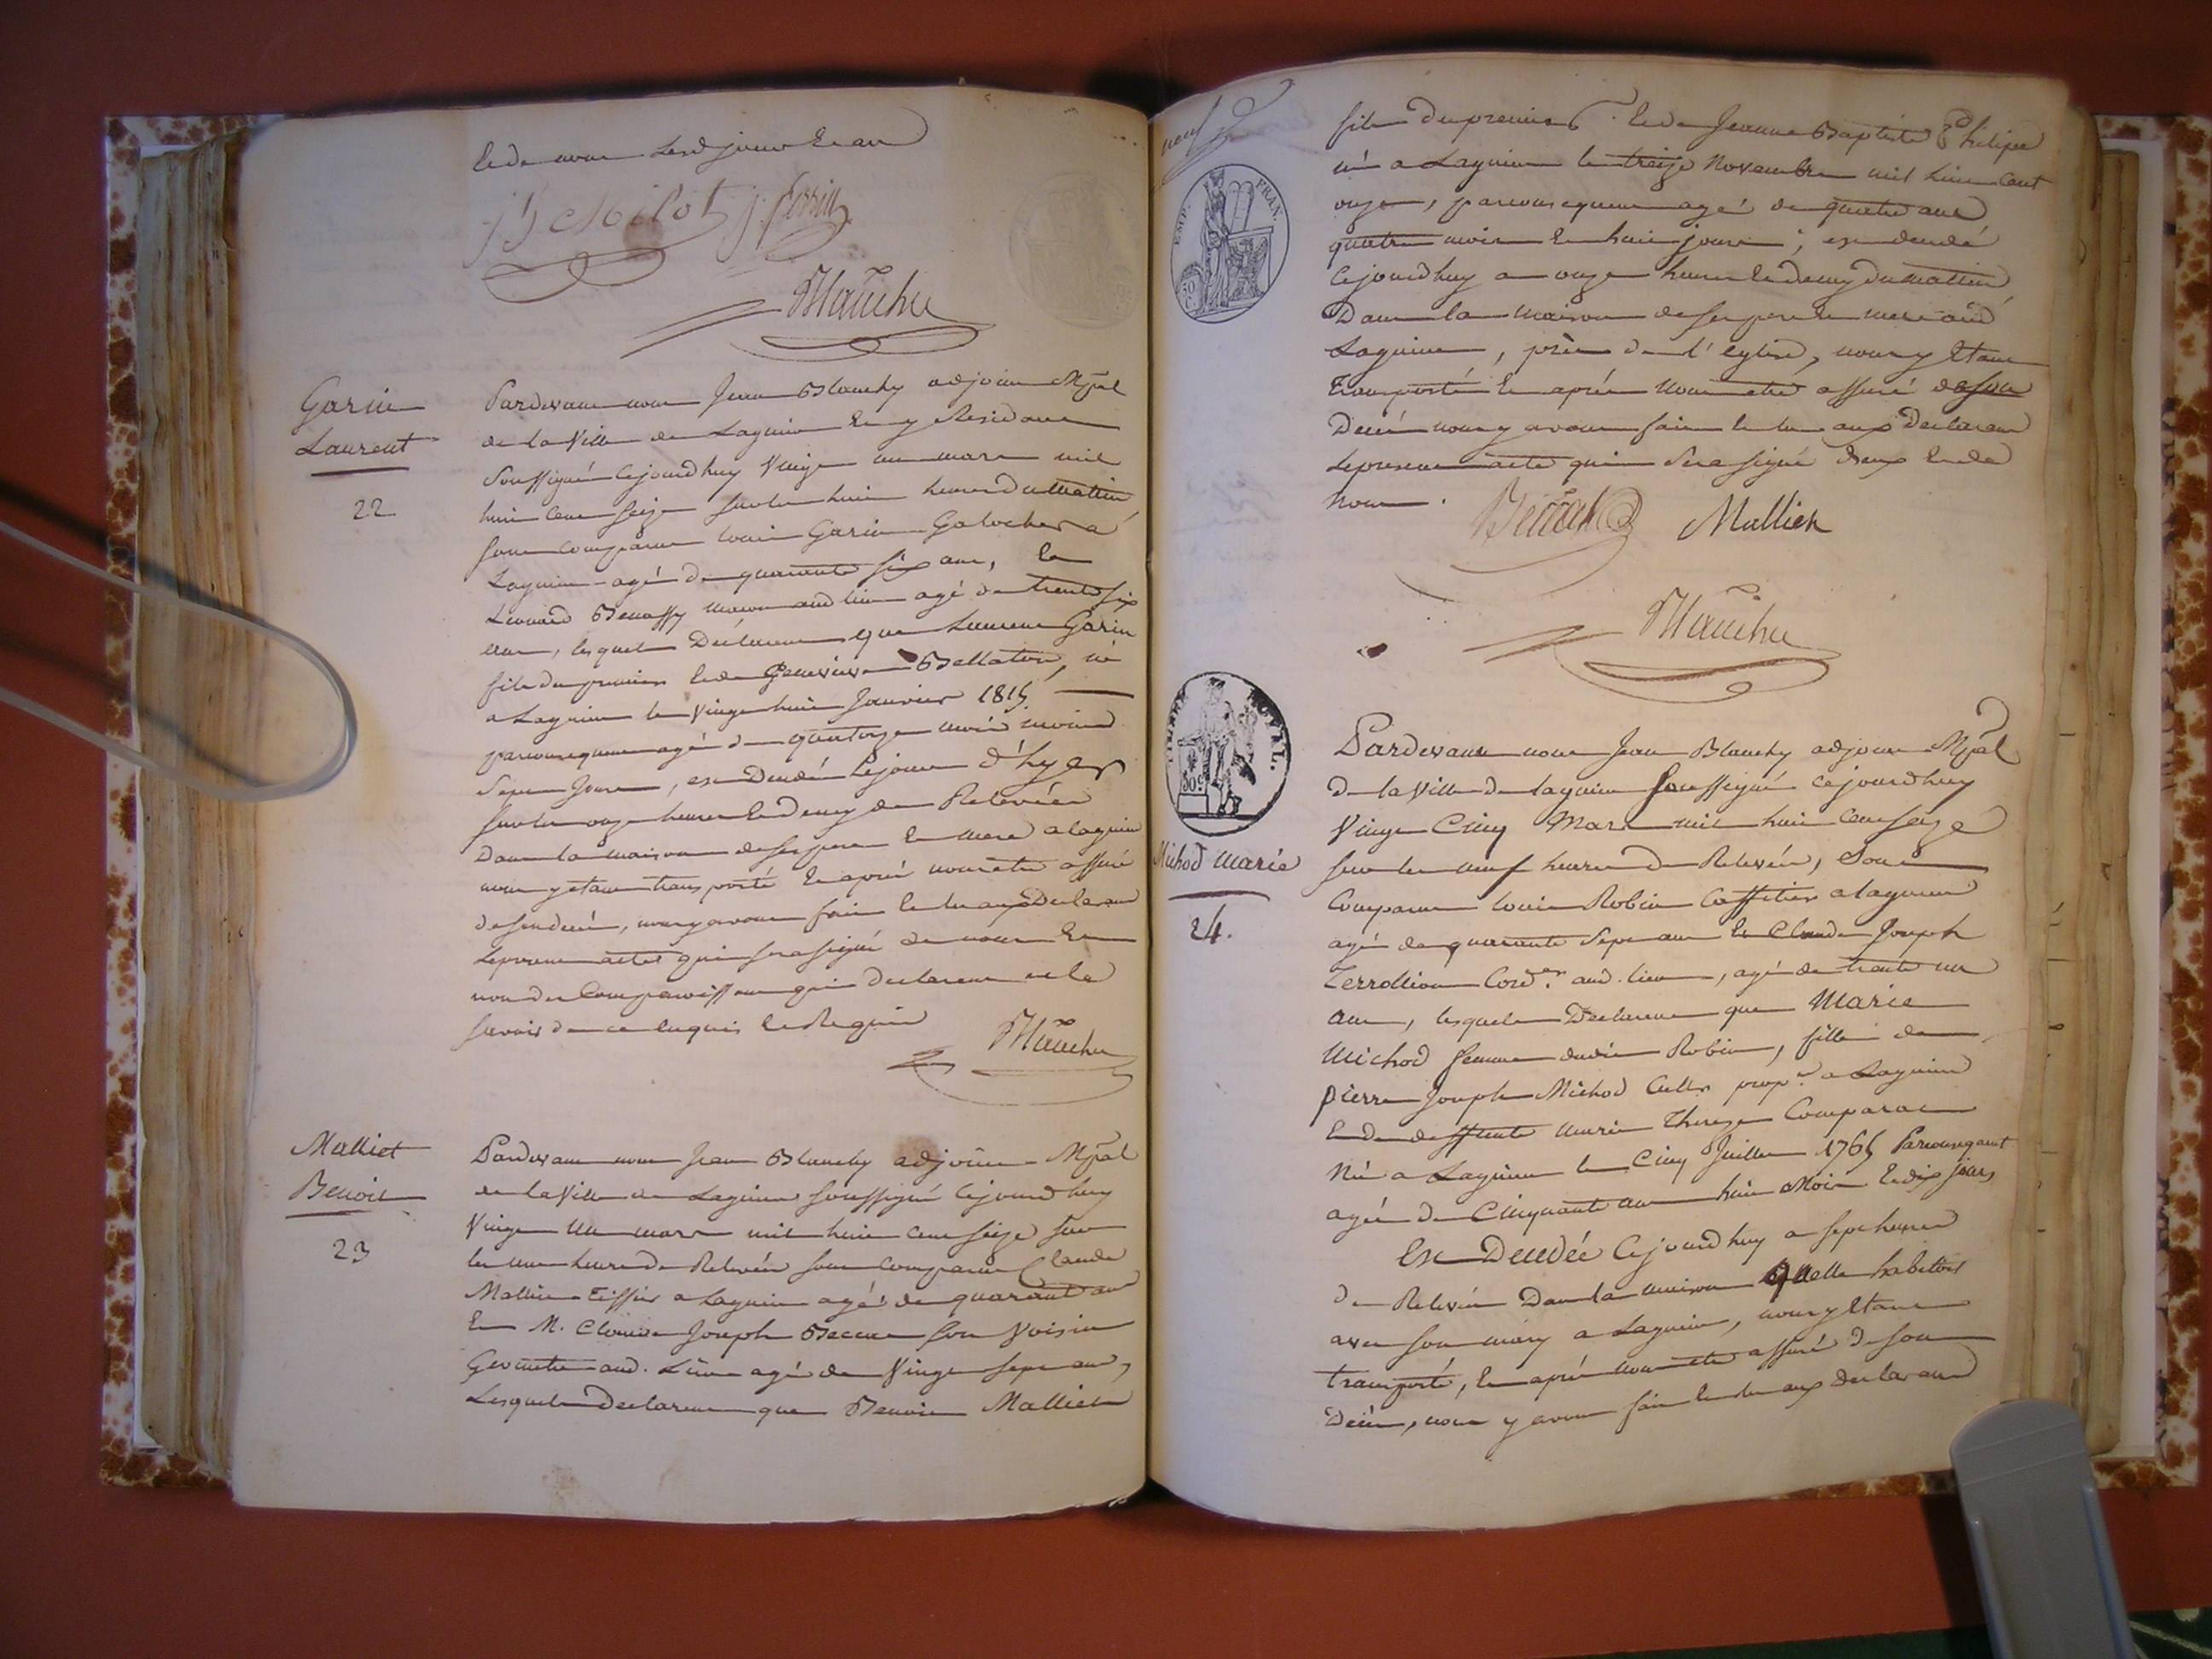 et de nous lesd jour et an
j B Milot j. Perrin
Blanchy
Garin
Laurent
22
Pardevant nous Jean Blanchy adjoint Mpal
de la Ville de Lagnieu et y Residant
Soussigné cejourdhuy Vingt un mars mil
huit cent seize sur les huit heures du matin
sont comparus Louis Garin Galocher a
Lagnieu agé de quarante six ans, et
Léonard Benassy maçon aud lieu agé de trente six
ans, lesquels Déclarent que Laurent Garin
fils du premier et de Genevieve Bellaton, né
a Lagnieu le Vingt huit Janvier 1815
parconsequent agé de quatorze mois moins
Sept Jours, est Decédé le jour d'hyer
sur les onze heures et demy de Relevée
Dans la maison de ses pere et mere a Lagnieu
nous y etant transporté et après nous être assuré
de son decés, nous y avons fait lecture aux Declarans
du present acte qui sera signé de nous et
non des Comparoissans qui declarent ne le
savoir de ce enquis et Requis
Blanchy
Malliet
Benoit
23
Pardevant nous Jean Blanchy adjoint Mpal
de la Ville de Lagnieu soussigné cejourdhuy
Vingt Un mars mil huit cent seize sur
les une heure de Relevée sont comparus Claude
Malliet Tissier a Lagnieu agé de quarante ans
et M. Claude Joseph son Voisin
Geometre aud. Lieu agé de Vingt sept ans,
Lesquels Declarent que Benoit Malliet
neuf
EMP. FRAN.
50 C.
fils du premier et de Jeanne Baptiste Philipe
né a Lagnieu le treize Novembre mil huit cent
onze, parconsequent agé de quatre ans
quatre mois et huit jours, est decedé
cejourdhuy a onze heures et demy du matin
Dans la maison de ses pere et mere aud
Lagnieu, près de l'eglise, nous y etant
transporté et après nous etre assuré de son
Decés nous y avons fait lecture aux Declarans
du present acte qui sera signé d'eux et de
nous.
Malliet
Blanchy
TIMBRE ROYAL.
50 c.
Michod Marie
24.
Pardevant nous Jean Blanchy adjoint Mpal
de la Ville de Lagnieu soussigné cejourdhuy
Vingt Cinq Mars mil huit cent seize
sur les neuf heures de Relevée, Sont
Comparus Louis Robin Caffetier a Lagnieu
agé de quarante Sept ans et Claude Joseph
Terrollion Cord.er aud. lieu, agé de trente un
ans, lesquels Declarent que Marie
Michod femme dudit Robin, fille de
pierre Joseph Michod Cultr prop.re a Lagnieu
et de deffunte Marie Thereze Comparat
Née a Lagnieu le Cinq Juillet 1765 Parconsequent
agée de Cinquante ans huit Mois et dix jours
Est Decedée cejourdhuy a sept heures
de Relevée Dans la maison quelle habitoit
avec son mary a Lagnieu, nous y etant
transporté, et après nous etre assuré de son
decés, nous y avons fait lecture aux declarans